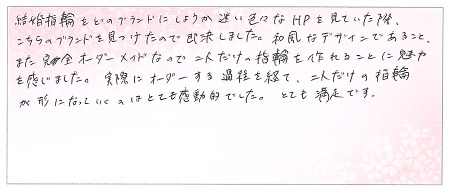 結婚指輪をどのブランドにしようか迷い色々なHPを見ていた際、
こちらのブランドを見つけたので即決しました。和風なデザインであること、
また完全オーダーメイドなので二人だけの指輪を作れることに魅力
を感じました。実際にオーダーする過程を経て、二人だけの指輪
が形になっていくのはとても感動的でした。とても満足です。